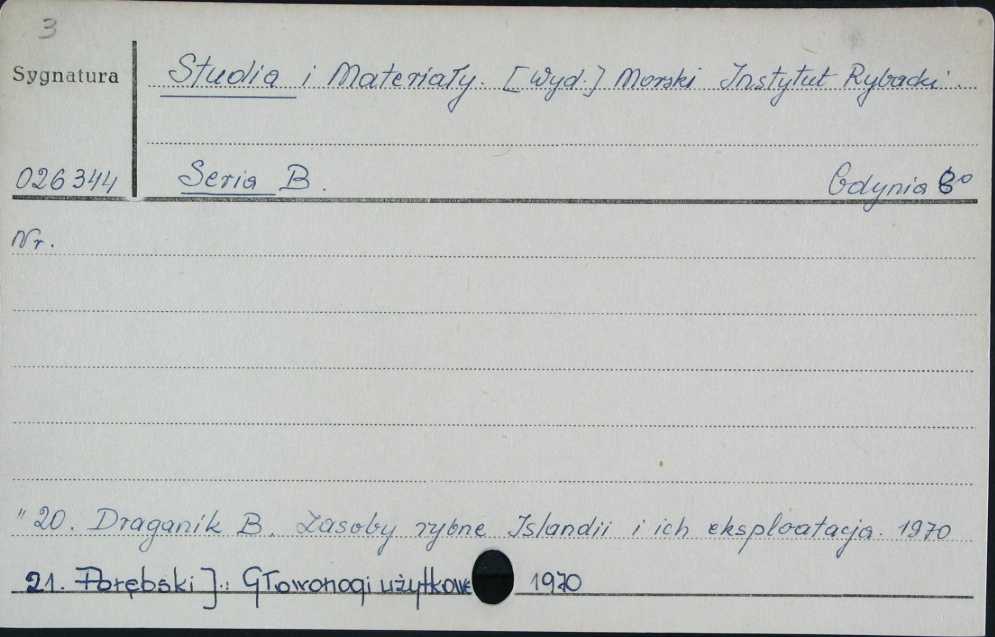 3
Sygnatura Studia i Materiały. [Wyd.] Morski Instytut Rybacki.
026344 Seria B. Gdynia 8°
Nr.
" 20. Draganik B. Zasoby rybne Islandii i ich eksploatacja. 1970
21. Porębski J.: Głowonogi użytkowe 1970